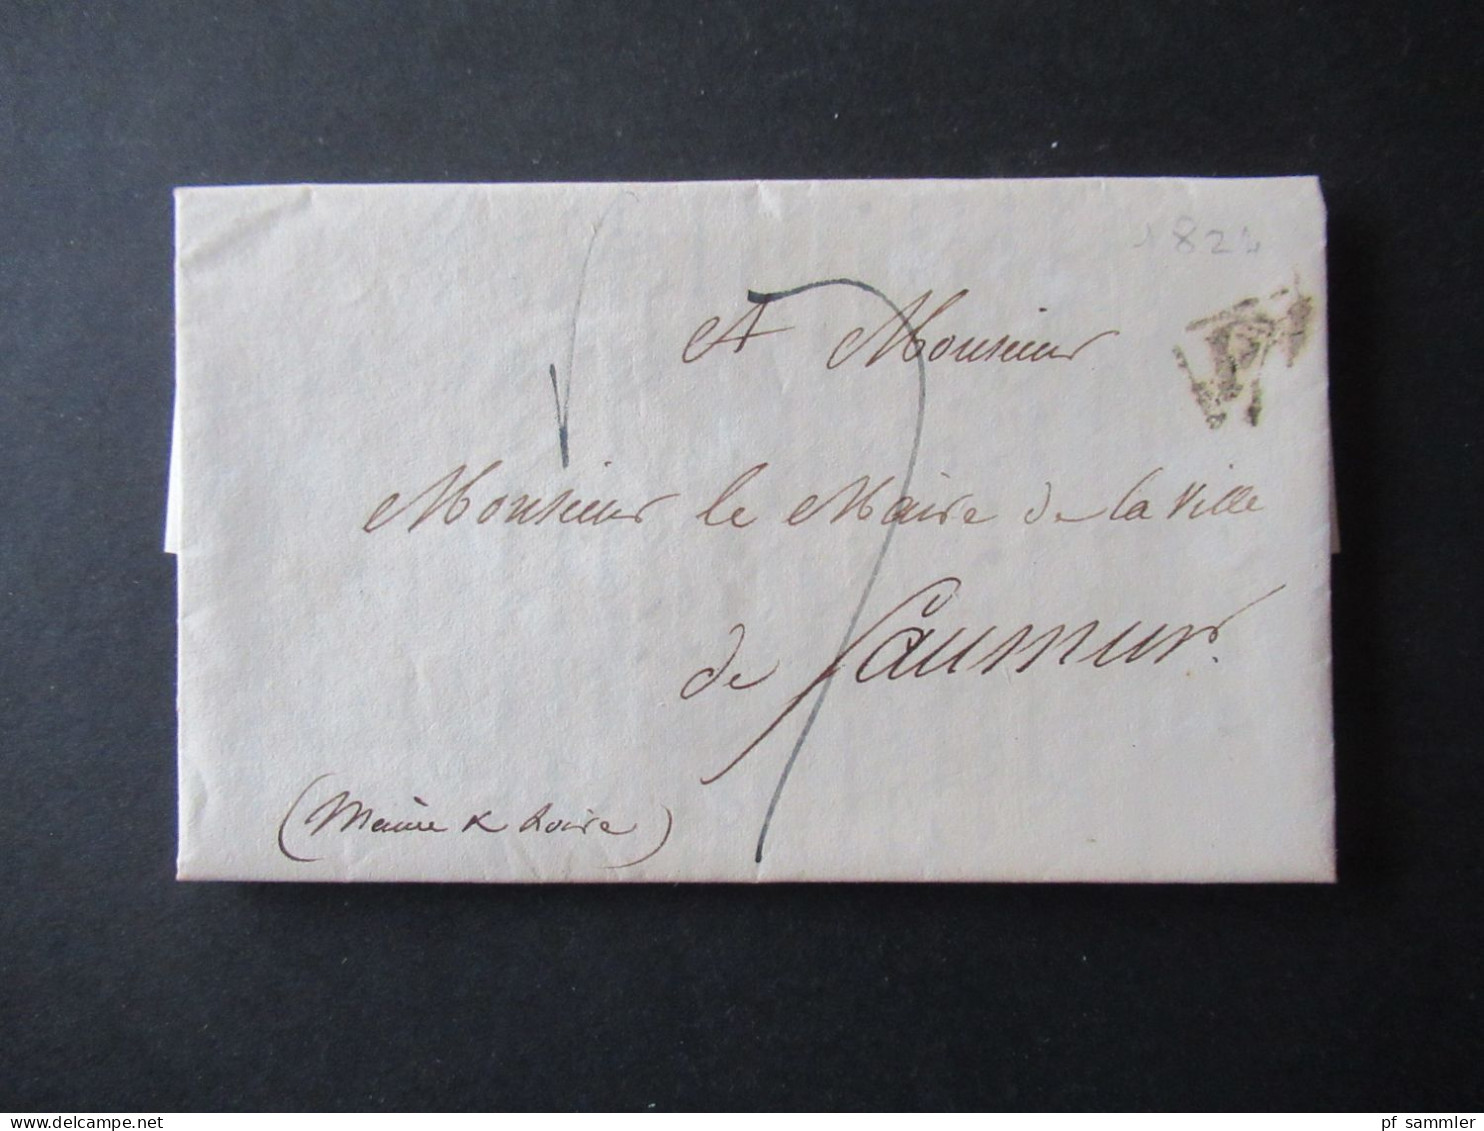 182
P
A Monsieur
Monsieur le Maire de la Ville
de Saumur.
(Maine & Loire)
www.delcampe.net
pf_sammler